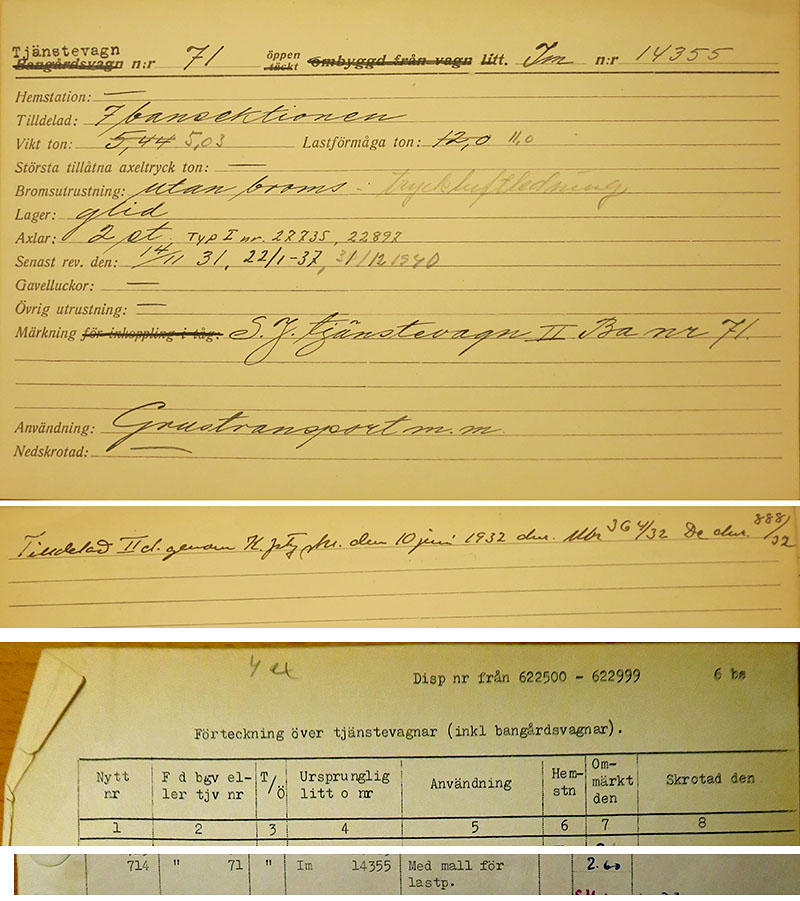 Tjänstevagn
Bangårdsvagn n:r 71 öppen täckt ombyggd från vagn litt. Im n:r 14355
Hemstation: —
Tilldelad: 7 bansektionen
Vikt ton: 5,44 5,03 Lastförmåga ton: 12,0 11,0
Största tillåtna axeltryck ton: —
Bromsutrustning: utan broms - tryckluftledning
Lager: glid
Axlar: 2 st. Typ I nr. 27735, 22897
Senast rev. den: 14/11 31, 22/1-37, 31/12 1940
Gavelluckor: —
Övrig utrustning: —
Märkning för inkoppling i tåg: S.J. tjänstevagn II Ba nr 71.
Användning: Grustransport m.m.
Nedskrotad: —
Tilldelad II d. genom K. skr. den 10 juni 1932 dnr. Mbr 364/32 De dnr. 888/32
4 ex
Disp nr från 622500 - 622999 6 bs
Förteckning över tjänstevagnar (inkl bangårdsvagnar).
Nytt nr F d bgv el- ler tjv nr T/Ö Ursprunglig litt o nr Användning Hem- stn Om- märkt den Skrotad den
1 2 3 4 5 6 7 8
714 " 71 " Im 14355 Med mall för 2.60
lastp.